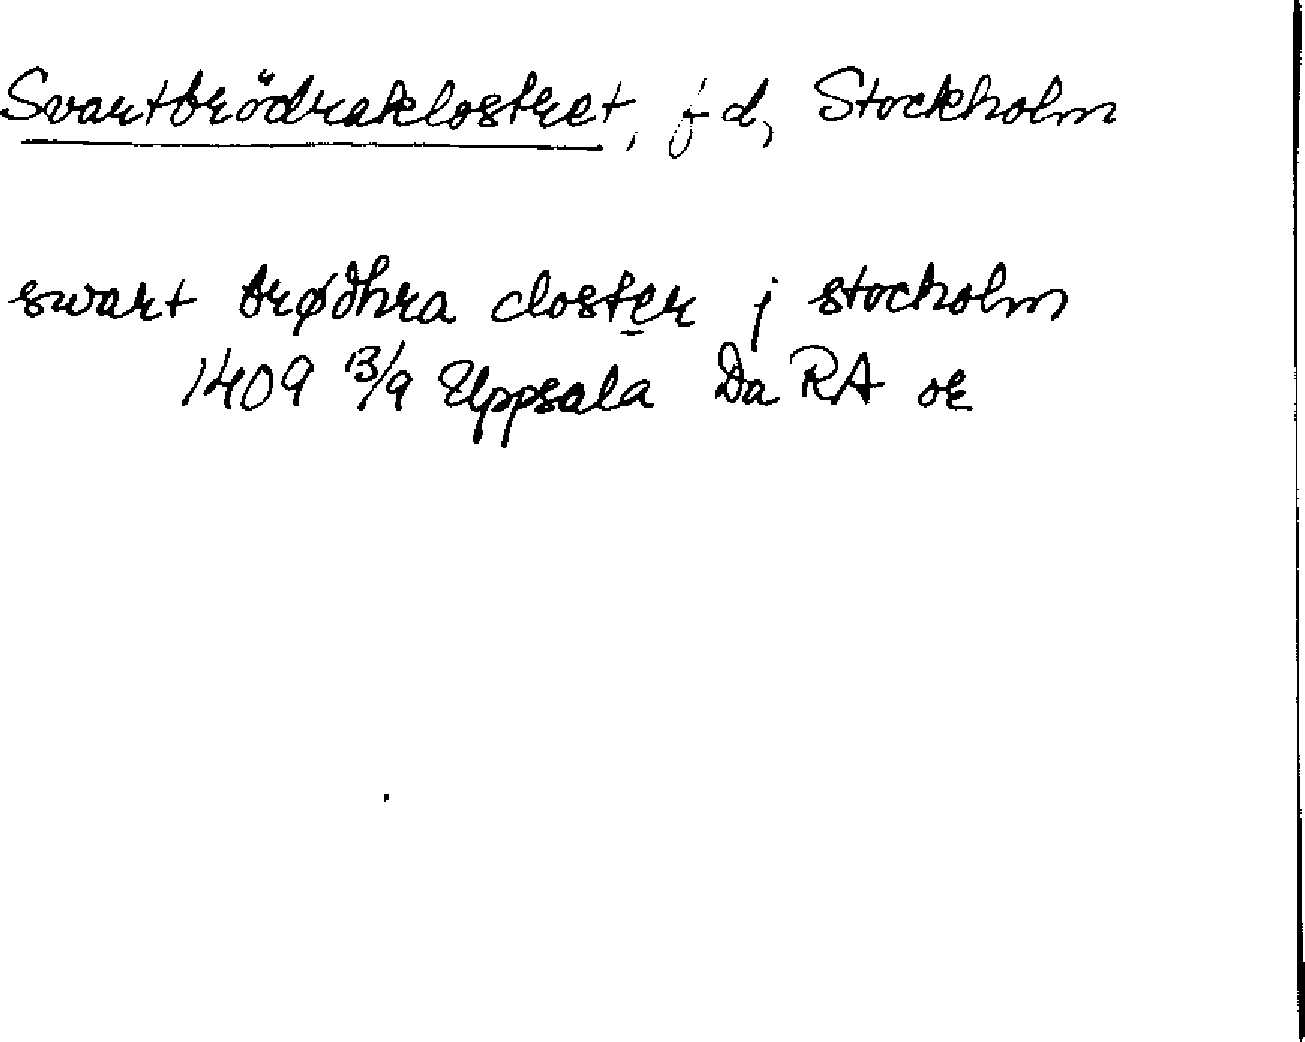 Svartbrödraklostret, f d, Stockholm
swart brødhra closter j stocholm
1409 13/9 Uppsala Da RA or